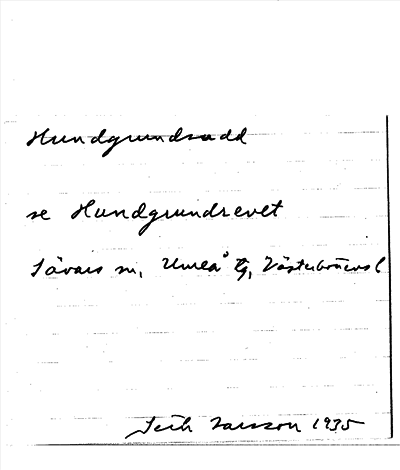 Hundgrundsudd
se Hundgrundsrevet
Sävars sn, Umeå tg, Västerbottens l
Larsson 1935